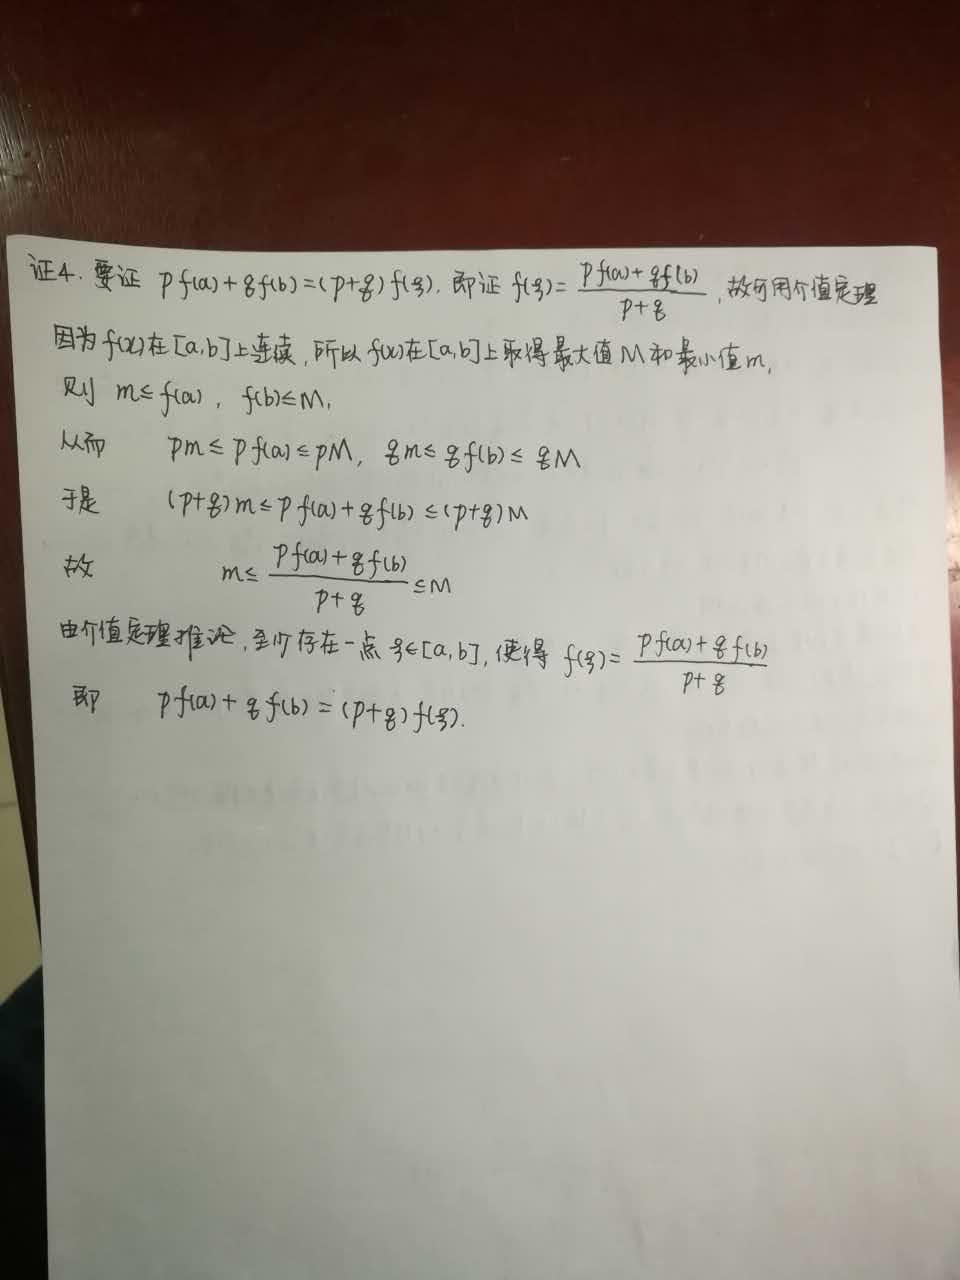 证4. 要证 pf(a)+qf(b)=(p+q)f(ξ). 即证 f(ξ)=\frac{pf(a)+qf(b)}{p+q}, 故可用介值定理
因为f(x)在[a,b]上连续,所以f(x)在[a,b]上取得最大值M和最小值m,
则 m≤f(a), f(b)≤M,
从而 pm≤pf(a)≤pM, qm≤qf(b)≤qM
于是 (p+q)m≤pf(a)+qf(b)≤(p+q)M
故 m≤\frac{pf(a)+qf(b)}{p+q}≤M
由介值定理推论,至少存在一点ξ∈[a,b],使得 f(ξ)=\frac{pf(a)+qf(b)}{p+q}
即 pf(a)+qf(b)=(p+q)f(ξ).